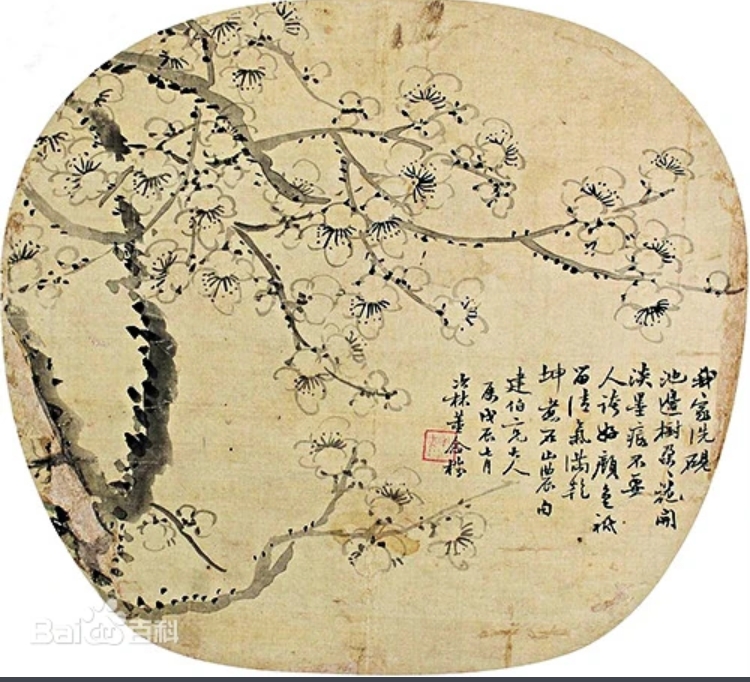 我家洗硯
池邊樹朶〻花開
淡墨痕不要
人誇好顏色祗
留清氣滿乾
坤 煮石山農句
建伯兄大人
属 戊辰七月
林董念
Bai 百科